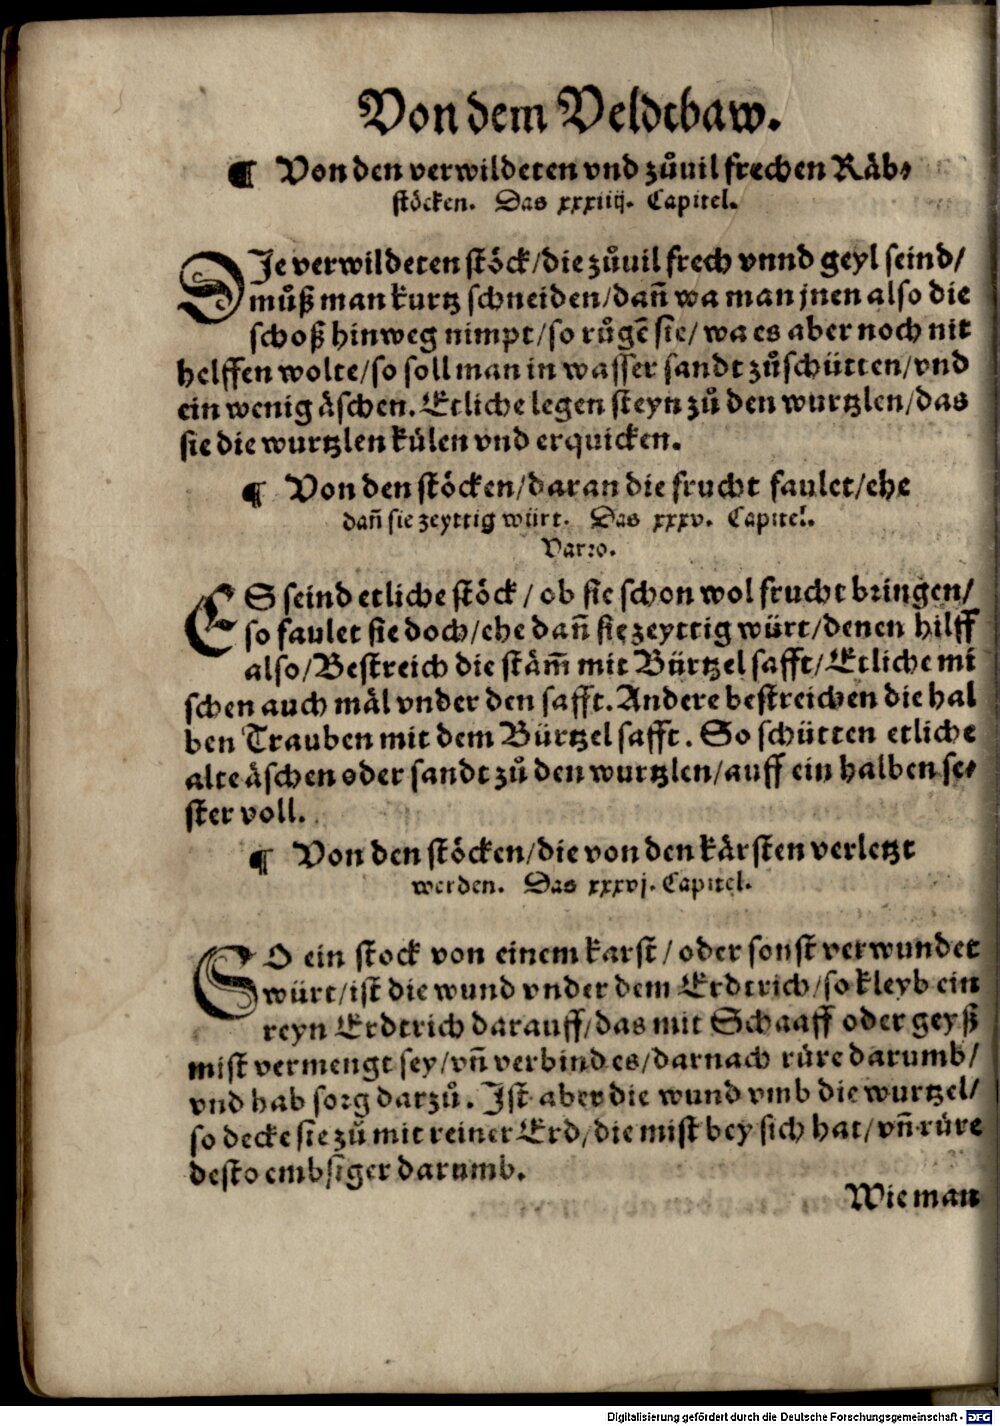 Von dem Veldtbaw.
¶ Von den verwildeten vnd zůuil frechen Räb⸗
stöcken. Das xxxiiij. Capitel.
DJe verwildeten stöck/die zůuil frech vnnd geyl seind/
můß man kurtz schneiden/dañ wa man jnen also die
schoß hinweg nimpt/so růgẽ sie/wa es aber noch nit
helffen wolte/so soll man in wasser sandt zůschütten/vnd
ein wenig äschen. Etliche legen steyn zů den wurtzlen/das
sie die wurtzlen külen vnd erquicken.
¶ Von den stöcken/daran die frucht faulet/ehe
dañ sie zeyttig würt. Das xxxv. Capitel.
Varro.
ES seind etliche stöck/ob sie schon wol frucht bringen/
so faulet sie doch/ehe dañ sie zeyttig würt/denen hilff
also/Bestreich die stäm̃ mit Bürtzel safft/Etliche mi
schen auch mäl vnder den safft. Andere bestreichen die hal
ben Trauben mit dem Bürtzel safft. So schütten etliche
alte äschen oder sandt zů den wurtzlen/auff ein halben se⸗
ster voll.
¶ Von den stöcken/die von den kärsten verletzt
werden. Das xxxvj. Capitel.
SO ein stock von einem karst/oder sonst verwundet
würt/ist die wund vnder dem Erdtrich/so kleyb ein
reyn Erdtrich darauff/das mit Schaaff oder geyß
mist vermengt sey/vñ verbind es/darnach rüre darumb/
vnd hab sorg darzů. Jst aber die wund vmb die wurtzel/
so decke sie zů mit reiner Erd/die mist bey sich hat/vñ rüre
desto embsiger darumb.
Wie man
Digitalisierung gefördert durch die Deutsche Forschungsgemeinschaft - DFG